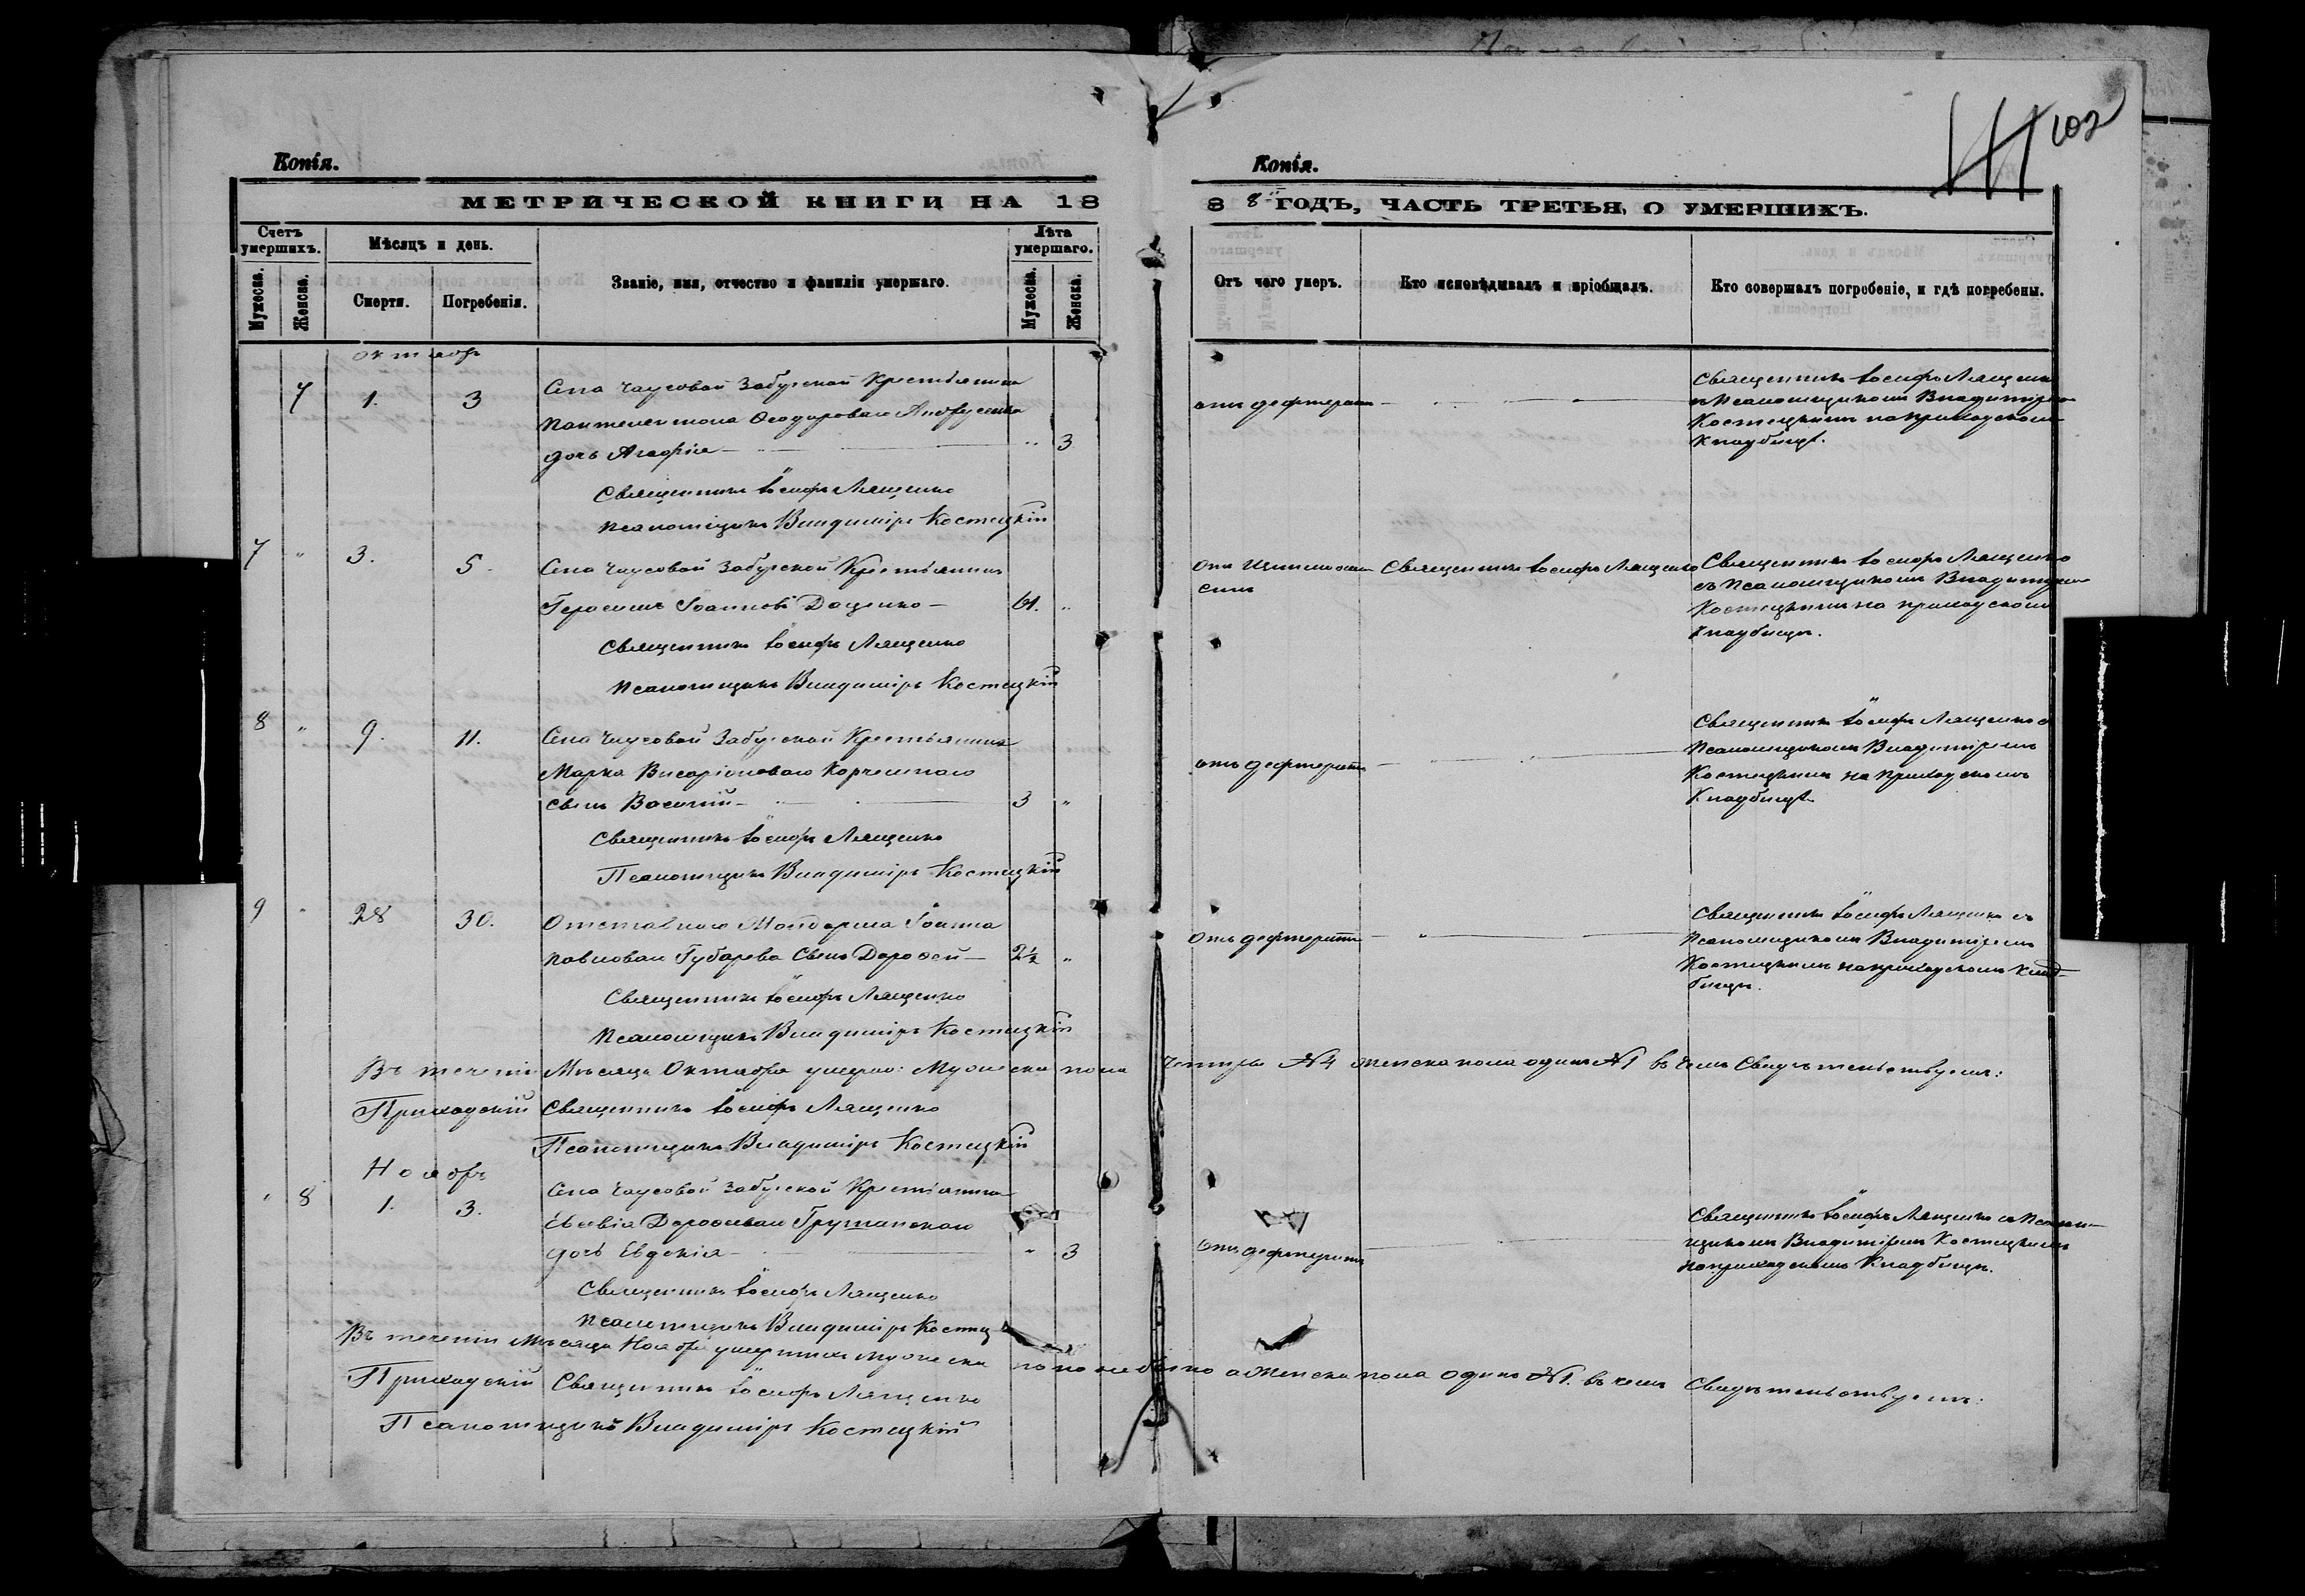 102
Копія.
МЕТРИЧЕСКОЙ КНИГИ НА 18
Счетъ умершихъ.
Мужеска.
Женска.
Мѣсяцъ и день.
Смерти.
Погребенія.
Званіе, имя, отчество и фамилія умершаго.
Лѣта умершаго.
Мужеска.
Женска.
Октябрь
7 1. 3
Села Чаусовой Забугской Крестьянина
Пантелеимона Ѳеодорова
дочь Агафія 3
Священникъ Іосифъ Лященко
Псаломщикъ Владиміръ Костецкій
7 " 3. 5.
Села Чаусовой Забугской Крестьянинъ
Герасимъ Іоанновъ Доценко 61. "
Священникъ Іосифъ Лященко
Псаломщикъ Владиміръ Костецкій
8 " 9. 11.
Села Чаусовой Забугской Крестьянина
Марка Висаріонова
сынъ Василій 3 "
Священникъ Іосифъ Лященко
Псаломщикъ Владиміръ Костецкій
9 " 28 30.
Отставнаго Жандарма Іоанна
Павлова Губарева сынъ Дороѳей 2½ "
Священникъ Іосифъ Лященко
Псаломщикъ Владиміръ Костецкій
Въ теченіи Мѣсяца Октября умерло: Мужеска пола
Приходскій Священникъ Іосифъ Лященко
Псаломщикъ Владиміръ Костецкій
Ноябрь
" 8 1. 3.
Села Чаусовой Забугской Крестьянина
Евсевія Дороѳеева
дочь Евдокія " 3
Священникъ Іосифъ Лященко
Псаломщикъ Владиміръ
Въ теченіи Мѣсяца Ноября умершихъ мужеска
Приходскій Священникъ Іосифъ Лященко
Псаломщикъ Владиміръ Костецкій
Копія.
8 8 ГОДЪ, ЧАСТЬ ТРЕТЬЯ, О УМЕРШИХЪ.
Отъ чего умеръ.
Кто исповѣдывалъ и пріобщалъ.
Кто совершалъ погребеніе, и гдѣ погребены.
отъ дефтерита
Священникъ Іосифъ Лященко
съ Псаломщикомъ Владиміромъ
Костецкимъ на приходскомъ
Кладбищѣ.
Священникъ Іосифъ Лященко
Священникъ Іосифъ Лященко
съ Псаломщикомъ Владиміромъ
Костецкимъ на приходскомъ
кладбищѣ.
отъ дефтерита
Священникъ Іосифъ Лященко с
Псаломщикомъ Владиміромъ
Костецкимъ на приходскомъ
Кладбищѣ
Отъ дефтерита
Священникъ Іосифъ Лященко съ
Псаломщикомъ Владиміромъ
Костецкимъ на приходскомъ клад-
бищѣ.
четыре №4 женска пола одинъ №1 въ чемъ Свидѣтельствуемъ:
отъ дефтерита
Священникъ Іосифъ Лященко съ Псалом-
щикомъ Владиміромъ Костецкимъ
на приходскомъ Кладбищѣ.
пола не было а женска пола одинъ №1. въ чемъ Свидѣтельствуемъ: